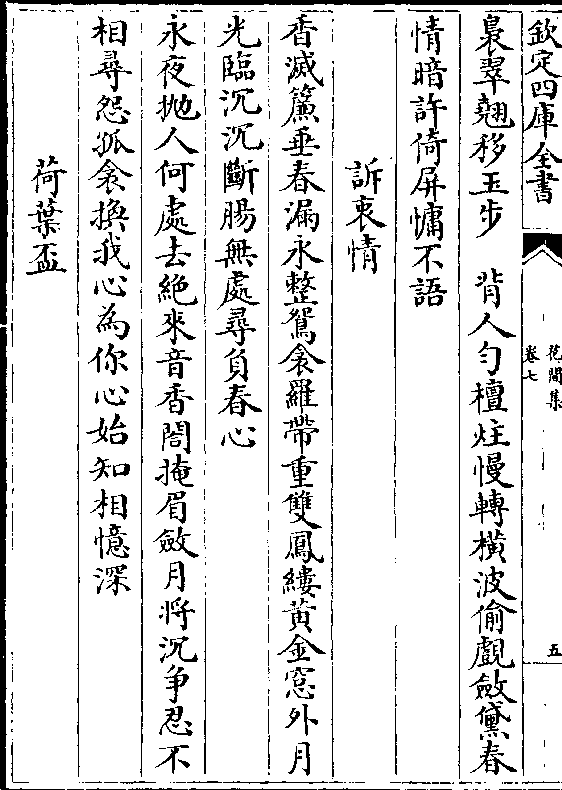 欽定四庫全書
花間集
卷七
五
裊翠翹移玉步　背人勻檀炷慢轉橫波偷覷斂黛春
情暗許倚屏慵不語
訴衷情
香滅簾垂春漏永整鴛衾羅帶重雙鳳縷黃金窓外月
光臨沉沉斷腸無處尋負春心
永夜抛人何處去絶來音香閤掩眉斂月將沉爭忍不
相尋怨孤衾換我心為你心始知相憶深
荷葉盃